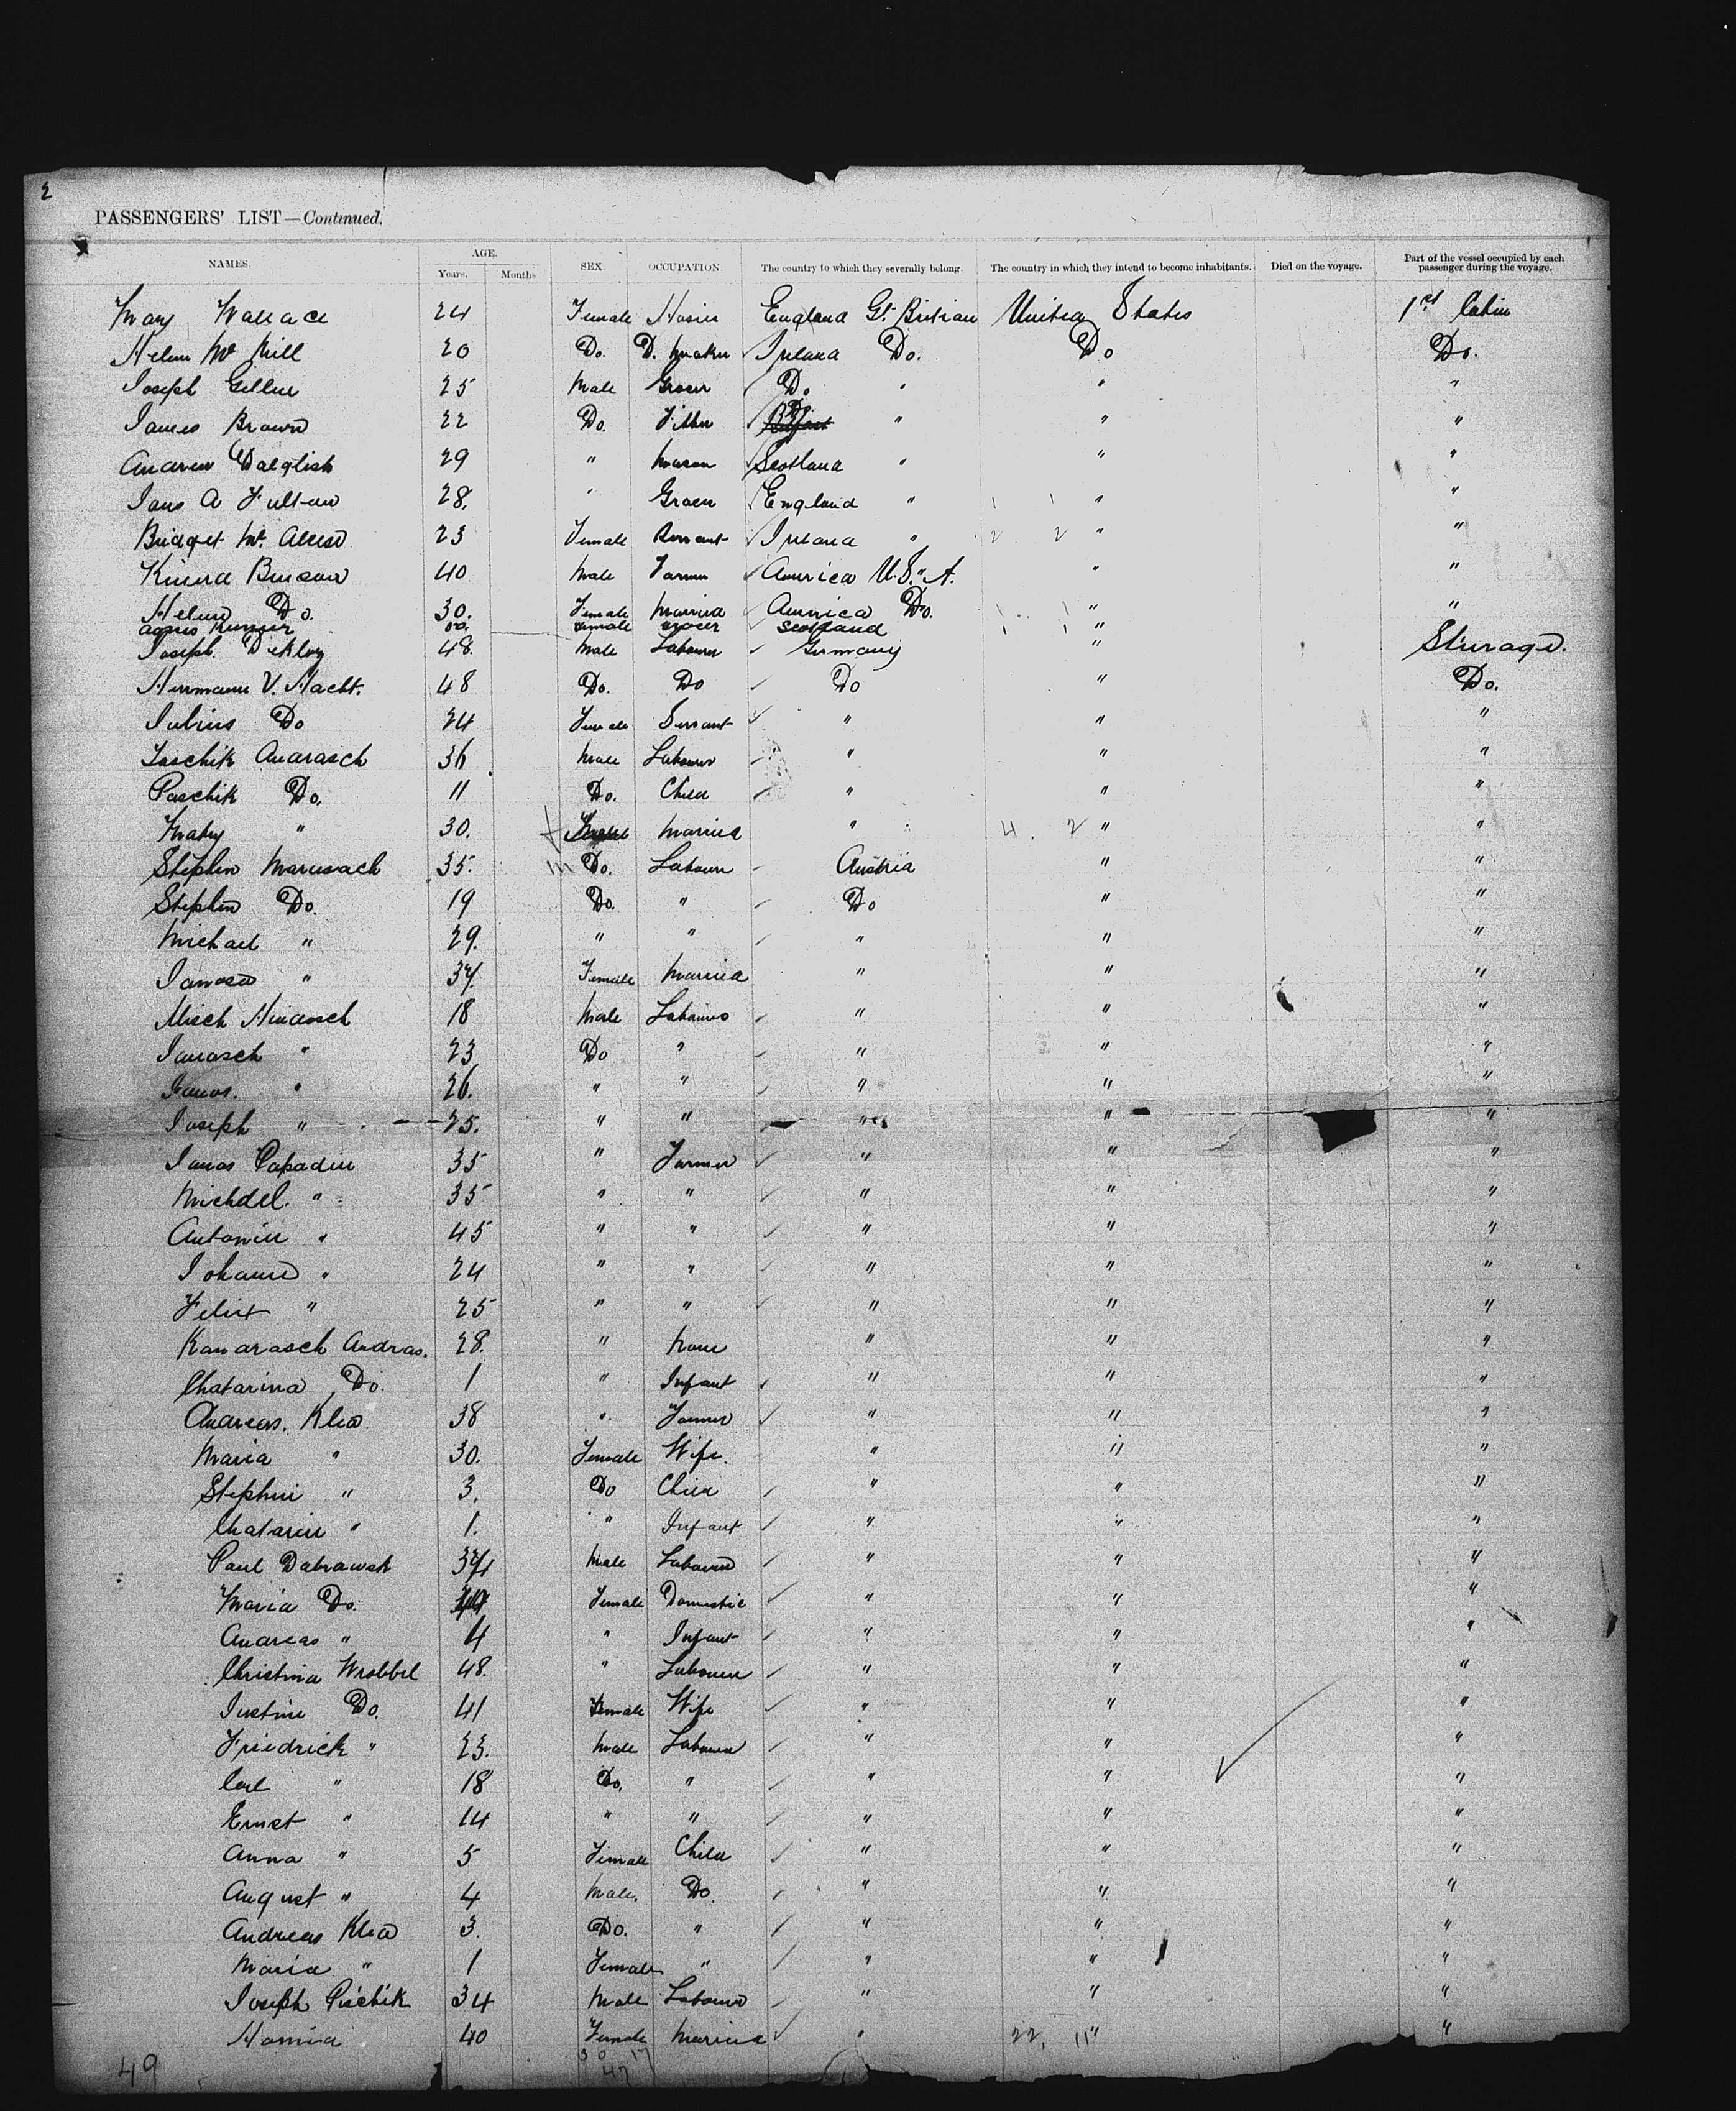 2
PASSENGERS' LIST—Continued.
NAMES. AGE. SEX. OCCUPATION. The country to which they severally belong. The country in which they intend to become inhabitants. Died on the voyage. Part of the vessel occupied by each passenger during the voyage.
Years. Months
Mary Wallace 24 Female England Gt. Britian United States 1st Cabin
Helen Mc Nill 20 Do. D. Maker Ireland Do. Do Do.
Joseph Gellie 25 Male Grocer Do " " "
James Brown 22 Do. Fitter Do " " "
Andrew Dalglish 29 " Mason Scotland " " "
Jans A Fulton 28. " Grocer England " 1 1 " "
Bridget Mc. 23 Female Servant Ireland " 2 2 " "
40 Male Farmer America U.S. A. " "
Helen Do. 30. Female Married America Do. 1 1 " "
Agnes Female Scotland 1 1 "
Joseph 48. Male Labourer Germany " Sturage.
Herrmann V. Nacht. 48 Do. Do Do " Do.
Julius Do 24 Female Servant " " "
Jaschik Andrasch 36 Male Labourer " " "
Paschik Do. 11 Do. Child " " "
Maty " 30. f Married " 4. 2 " "
Stephen Maruvach 35. m Do. Labourer Austria " "
Stephen Do. 19 Do. " Do " "
Michael " 29. " " " " "
Janosa " 37. Female Married " " "
Misch Hudasch 18 Male Labourer " " "
Janosch " 23 Do " " " "
Janos. " 26. " " " " "
Joseph " 25. " " " " "
Janos Papadin 35 " Farmer " " "
Michael. " 35 " " " " "
Antonin " 45 " " " " "
Johann " 24 " " " " "
Felix " 25 " " " " "
Kanarasch Andras. 28. " None " " "
Chatarina Do. 1 " Infant " " "
Andreas. Klea 38 " Farmer " " "
Maria " 30. Female Wife. " " "
Stephni " 3. Do Child " " "
Chatarin " 1. " Infant " " "
Paul Dabrawsk 37 Male Labourer " " "
Maria Do. Female Domestic " " "
Andreas " 4 " Infant " " "
Christina Wrobbel 48. " Labourer " " "
Justine Do. 41 Female Wife " " "
Friedrick " 23. Male Labourer " " "
Carl " 18 Do. " " " "
Ernst " 14 " " " " "
Anna " 5 Female Child " " "
August " 4 Male. Do. " " "
Andreas Klea 3. Do. " " " "
Maria " 1 Female " " " "
Joseph Pischik 34 Male Labourer " " "
40 Female Married " 22. 11 " "
49 30 17
47